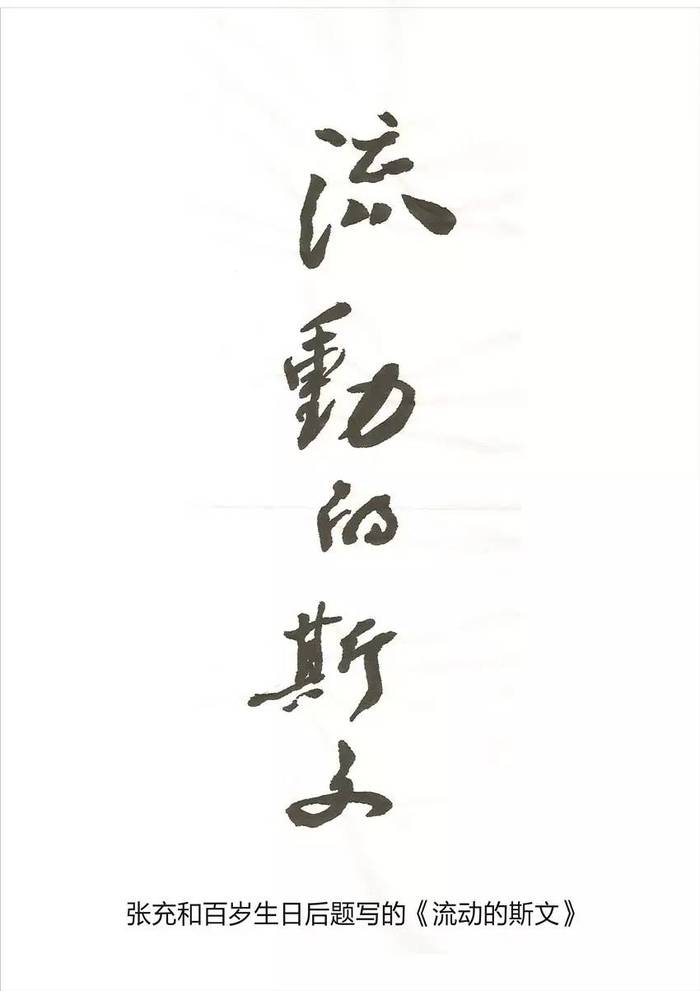 流動的斯文
张充和百岁生日后题写的《流动的斯文》